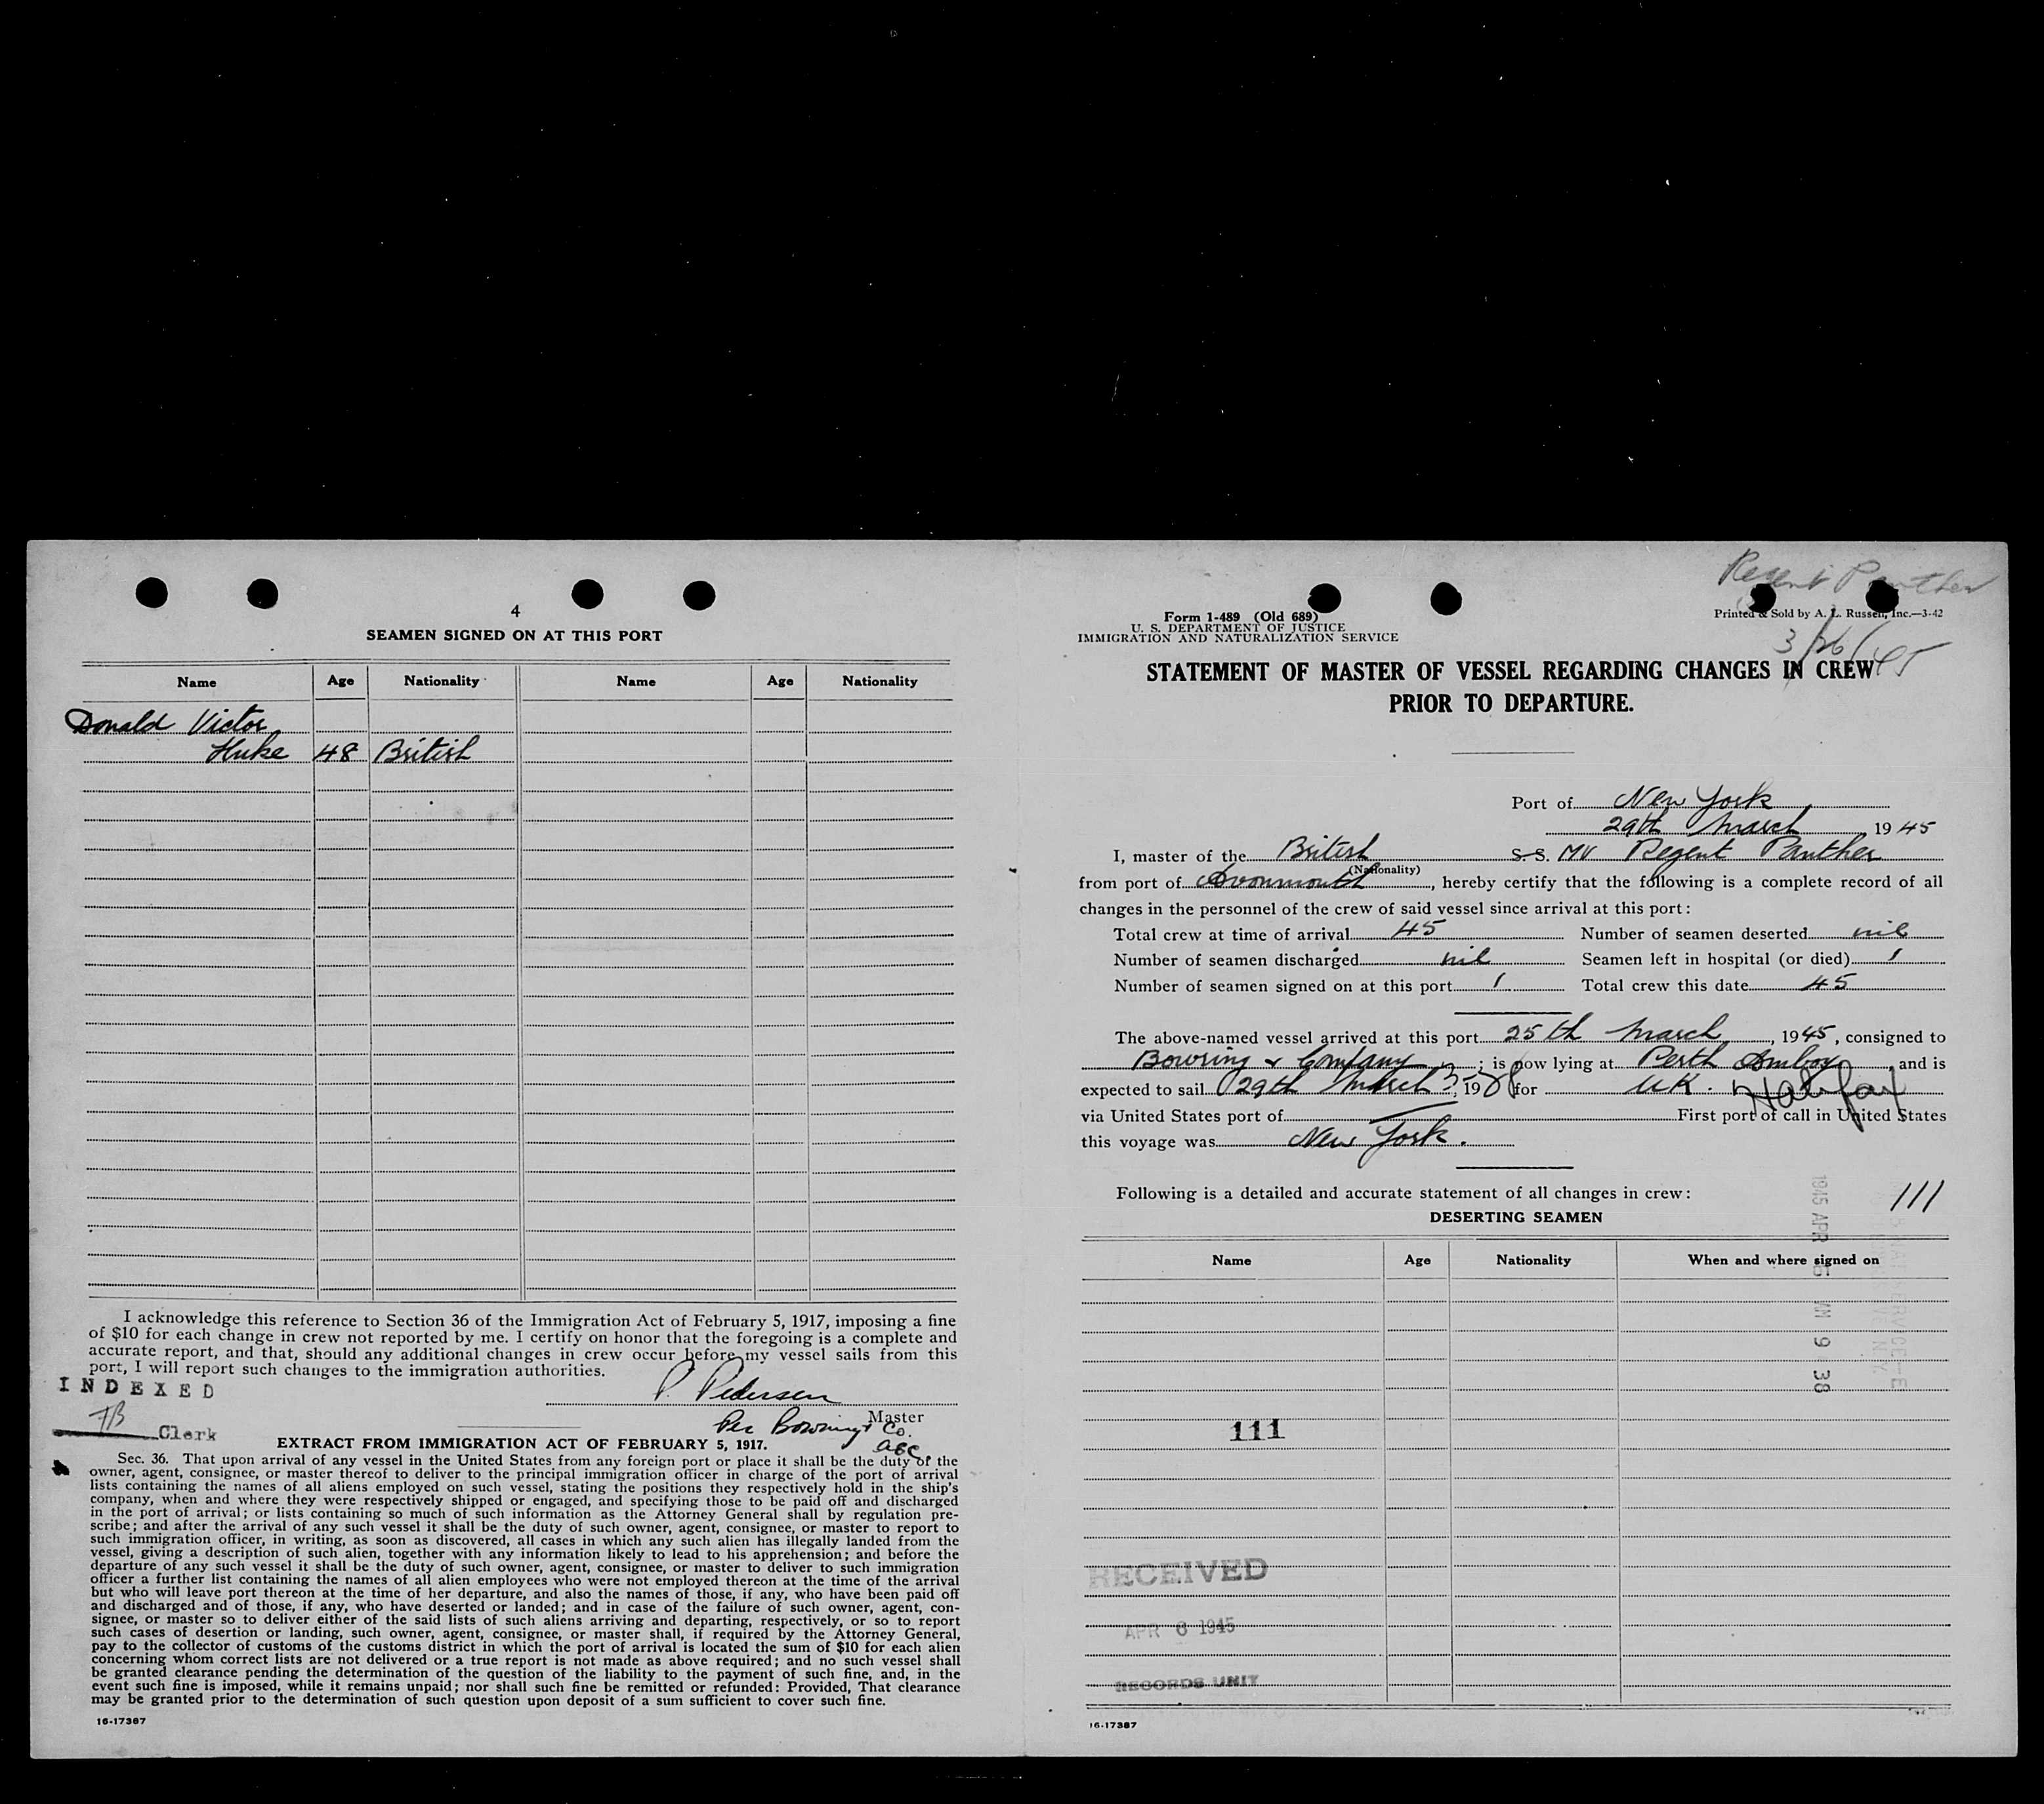 4
SEAMEN SIGNED ON AT THIS PORT
Name Age Nationality Name Age Nationality
Donald Victor
Huke 48 British
I acknowledge this reference to Section 36 of the Immigration Act of February 5, 1917, imposing a fine
of $10 for each change in crew not reported by me. I certify on honor that the foregoing is a complete and
accurate report, and that, should any additional changes in crew occur before my vessel sails from this
port, I will report such changes to the immigration authorities.
INDEXED
P. Pedersen
Master
Per Bowring & Co.
Clerk
EXTRACT FROM IMMIGRATION ACT OF FEBRUARY 5, 1917.
Sec. 36. That upon arrival of any vessel in the United States from any foreign port or place it shall be the duty of the
owner, agent, consignee, or master thereof to deliver to the principal immigration officer in charge of the port of arrival
lists containing the names of all aliens employed on such vessel, stating the positions they respectively hold in the ship's
company, when and where they were respectively shipped or engaged, and specifying those to be paid off and discharged
in the port of arrival; or lists containing so much of such information as the Attorney General shall by regulation pre-
scribe; and after the arrival of any such vessel it shall be the duty of such owner, agent, consignee, or master to report to
such immigration officer, in writing, as soon as discovered, all cases in which any such alien has illegally landed from the
vessel, giving a description of such alien, together with any information likely to lead to his apprehension; and before the
departure of any such vessel it shall be the duty of such owner, agent, consignee, or master to deliver to such immigration
officer a further list containing the names of all alien employees who were not employed thereon at the time of the arrival
but who will leave port thereon at the time of her departure, and also the names of those, if any, who have been paid off
and discharged and of those, if any, who have deserted or landed; and in case of the failure of such owner, agent, con-
signee, or master so to deliver either of the said lists of such aliens arriving and departing, respectively, or so to report
such cases of desertion or landing, such owner, agent, consignee, or master shall, if required by the Attorney General,
pay to the collector of customs of the customs district in which the port of arrival is located the sum of $10 for each alien
concerning whom correct lists are not delivered or a true report is not made as above required; and no such vessel shall
be granted clearance pending the determination of the question of the liability to the payment of such fine, and, in the
event such fine is imposed, while it remains unpaid; nor shall such fine be remitted or refunded: Provided, That clearance
may be granted prior to the determination of such question upon deposit of a sum sufficient to cover such fine.
16-17387
Regent Panther
Form 1-489 (Old 689)
U. S. DEPARTMENT OF JUSTICE
IMMIGRATION AND NATURALIZATION SERVICE
Printed & Sold by A. L. Russell, Inc.—3-42
3/26/45
STATEMENT OF MASTER OF VESSEL REGARDING CHANGES IN CREW
PRIOR TO DEPARTURE.
Port of New York
29th March 1945
I, master of the British S.S. MV Regent Panther
(Nationality)
from port of Avonmouth, hereby certify that the following is a complete record of all
changes in the personnel of the crew of said vessel since arrival at this port:
Total crew at time of arrival 45 Number of seamen deserted nil
Number of seamen discharged nil Seamen left in hospital (or died) 1
Number of seamen signed on at this port 1 Total crew this date 45
The above-named vessel arrived at this port 25th March, 1945, consigned to
Bowring & Company; is now lying at Perth Amboy, and is
expected to sail 29th March, 19 for UK. Halifax
via United States port of First port of call in United States
this voyage was New York.
Following is a detailed and accurate statement of all changes in crew: 111
DESERTING SEAMEN
Name Age Nationality When and where signed on
1945 APR 6 AM 9 38
111
RECEIVED
APR 6 1945
RECORDS UNIT
16-17387